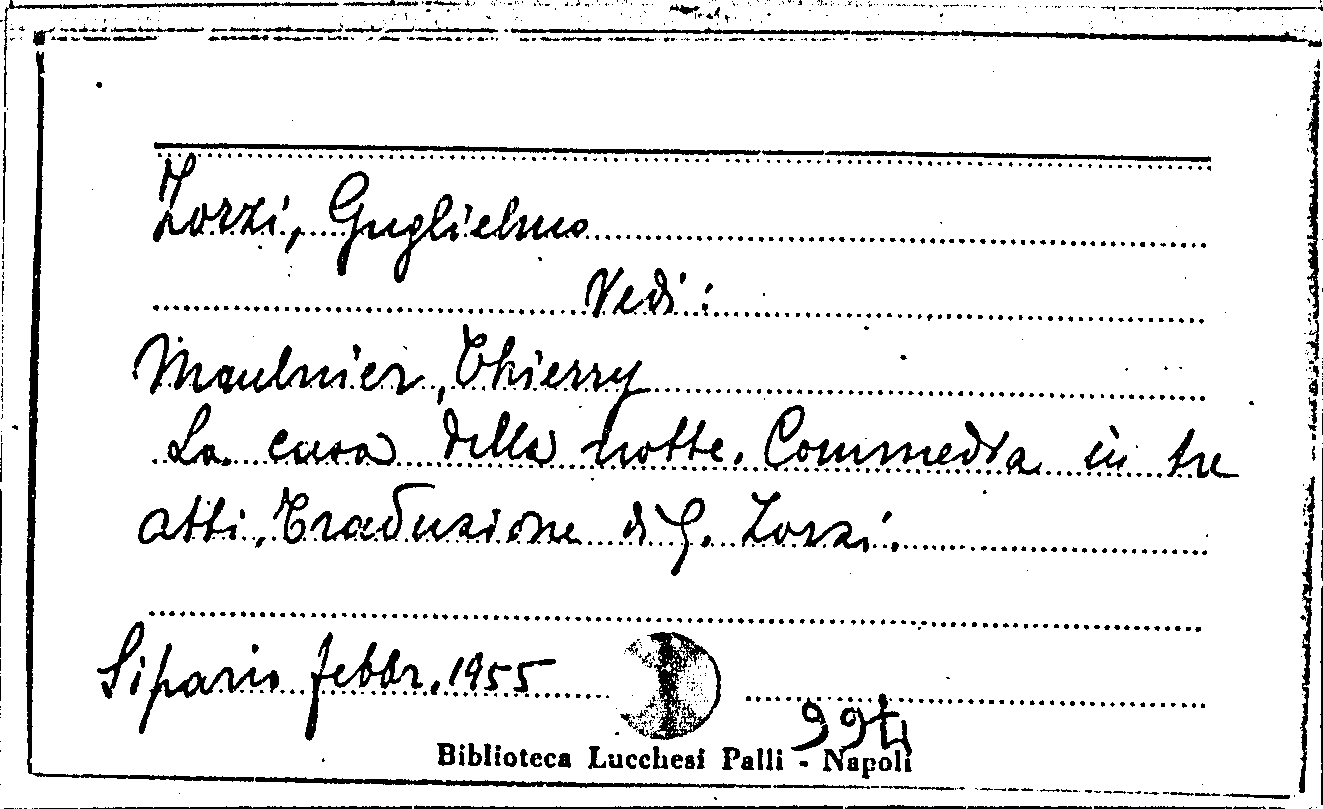 Zorzi, Guglielmo
Vedi:
Maulnier, Thierry
La casa della notte. Commedia in tre
atti. Traduzione di G. Zorzi.
Sipario febbr. 1955
Biblioteca Lucchesi Palli - Napoli